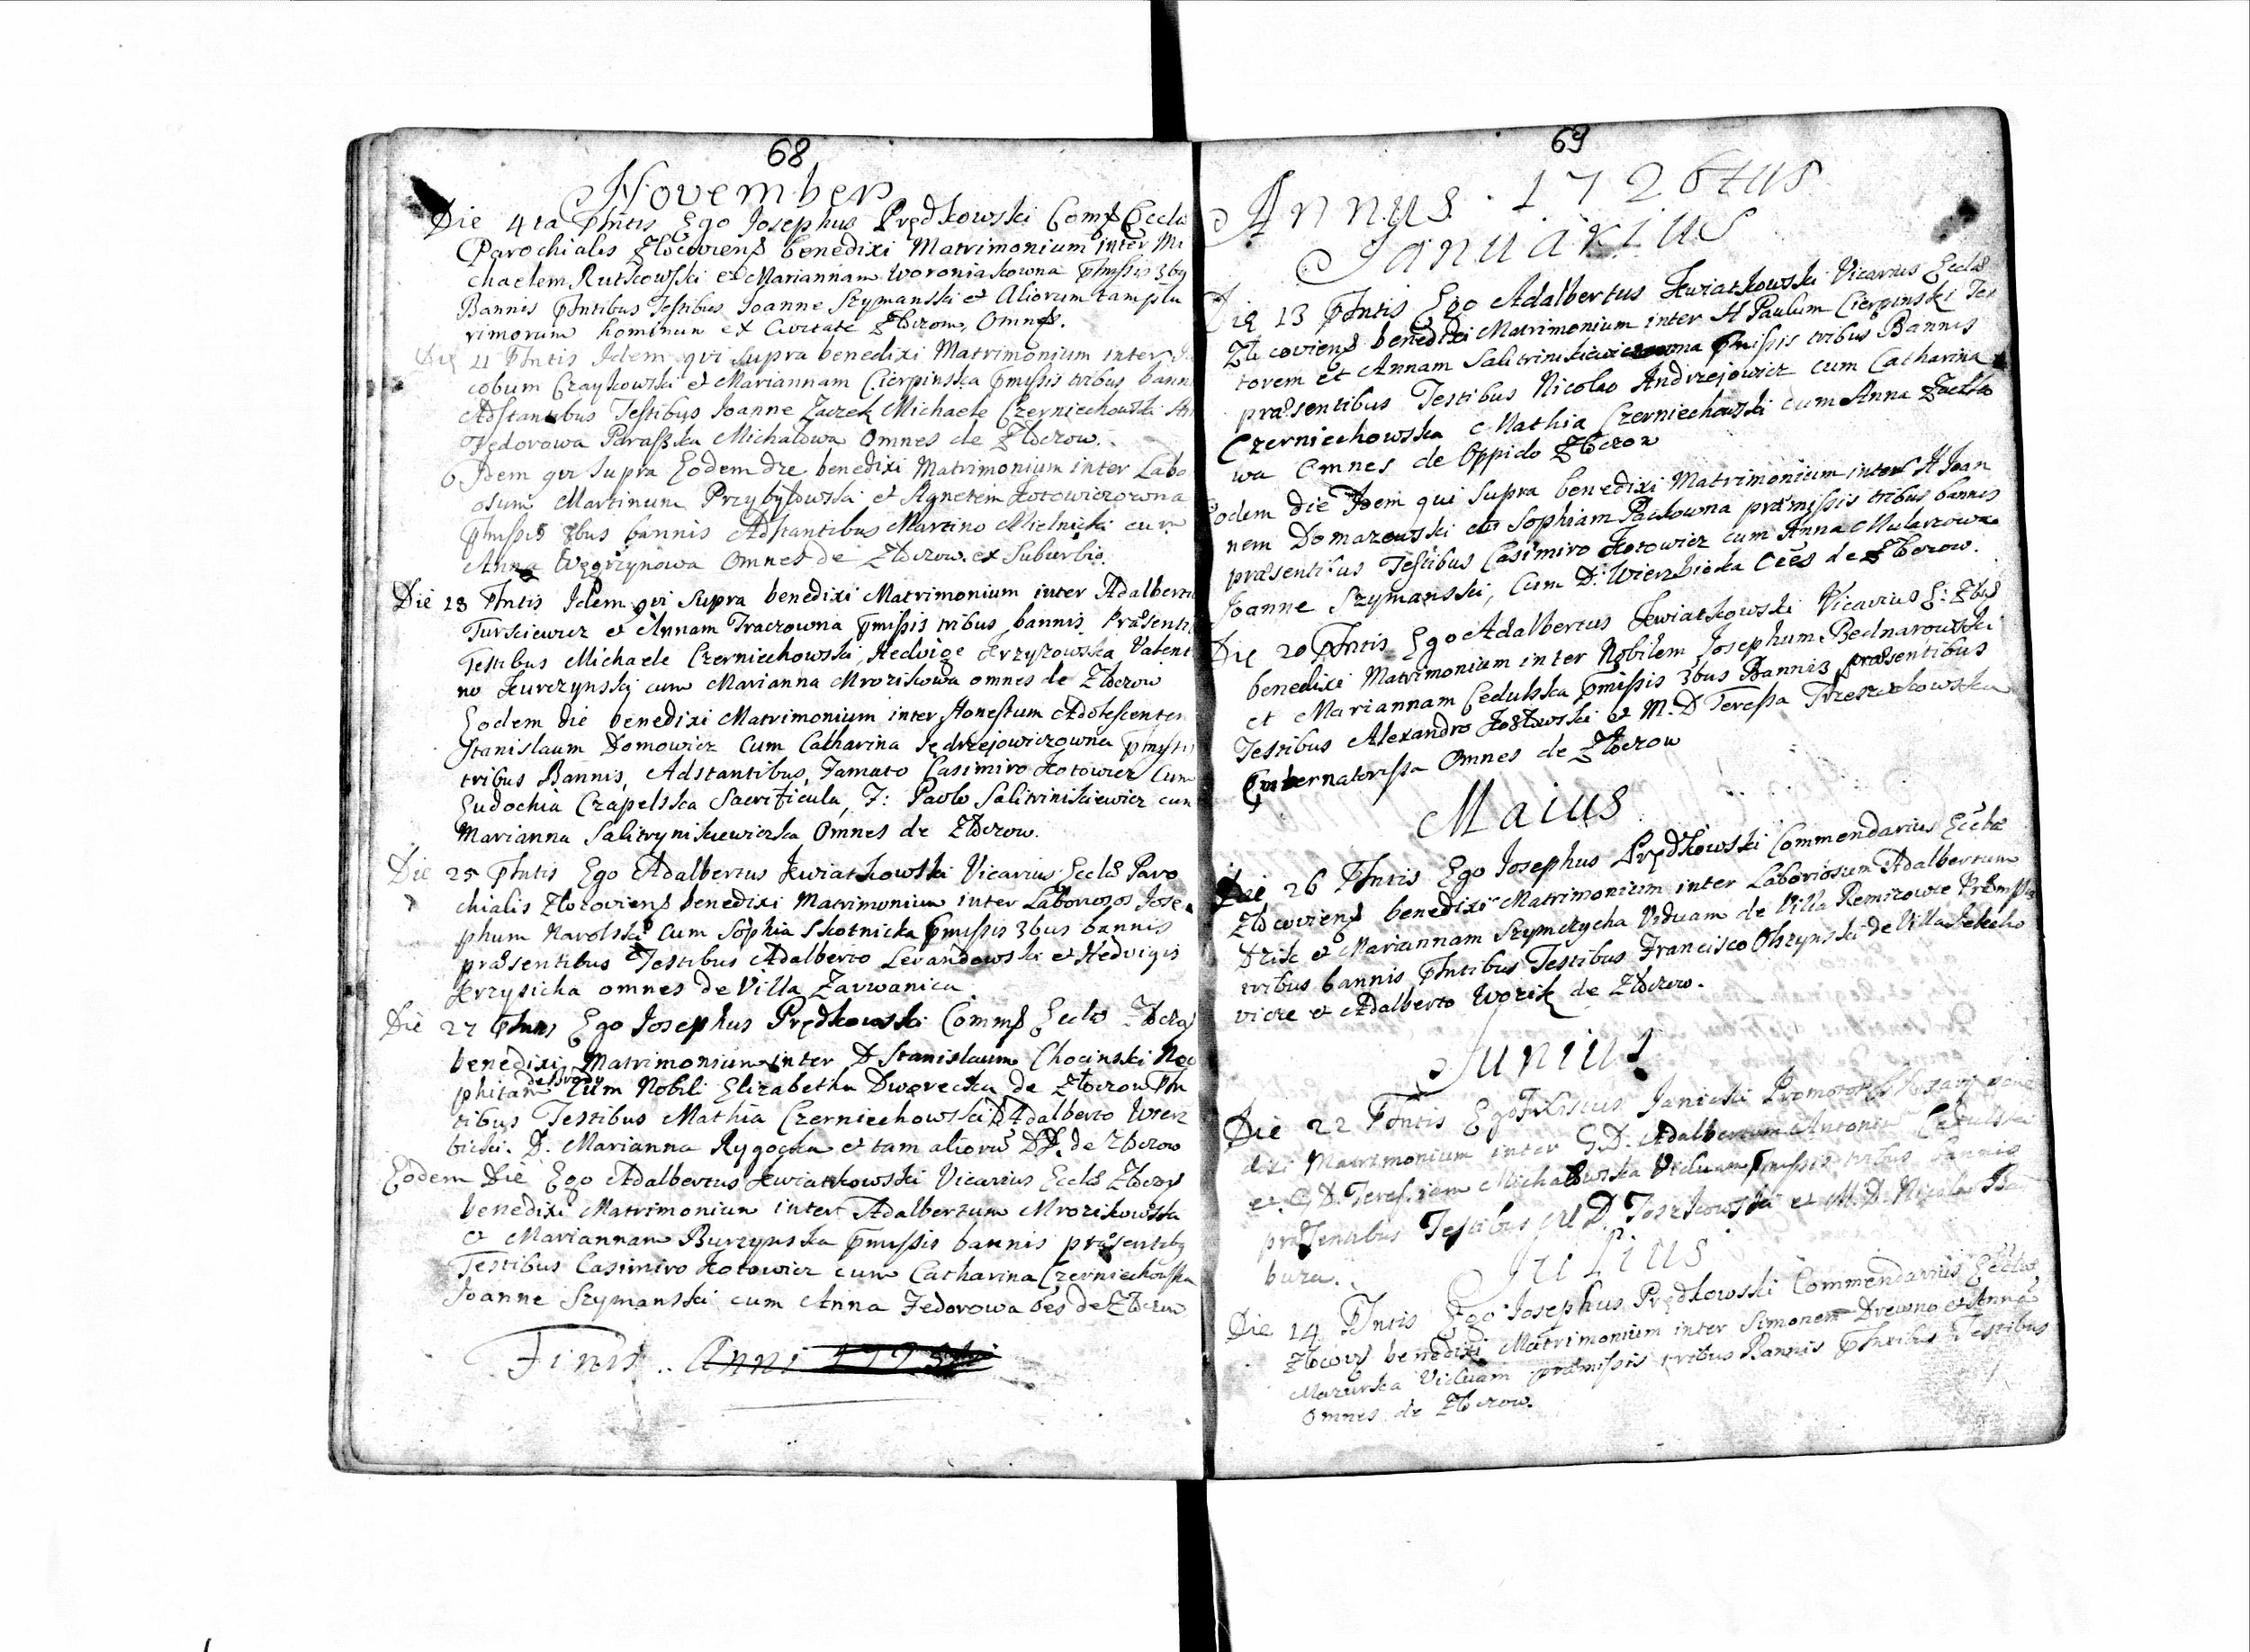 68
November
Die 4ta Phntis Ego Josephus Prędkowski Comd Eccla
Parochialis Zlocoviens benedixi Matrimonium inter Mi
chaelem Rutkowski et Mariannam Woroniakowna pmissis 3bq
Bannis Phntibus Testibus Joanne Szymanski et Aliorum tamplu
rimorum hominun ex Civitate Złoczow, Omnes.
Die 11 Phntis Idem qvi supra benedixi Matrimonium inter Ja
cobum Czaykowski et Mariannam Cierpinska pmissis tribus bann
Adstantibus Testibus Joanne Zaczek Michaele Czerniechowski
Fędorowa Paraszka Michałowa Omnes de Złoczow.
Idem qvi supra Eodem die benedixi Matrimonium inter Labo
osum Martinum Przybyłowski et Agnetem Kotowiczowna
pmissis 3bus bannis Adstantibus Martino Mielnicki cum
Anna Węgrzynowa Omnes de Złoczow ex Suburbio.
Die 13 Phntis Idem qvi supra benedixi Matrimonium inter Adalbertu
Turkiewicz et Annam Traczowna pmissis tribus bannis Præsenti
Testibus Michaele Czerniechowski, Hedvige Krzyzowska Valent
no Kurczynski cum Marianna Mrozikowa omnes de Złoczow
Eodem die benedixi Matrimonium inter Honestum Adolescentem
Stanislaum Domowicz Cum Catharina Jędrzejowiczowna pmissis
tribus Bannis, Adstantibus, Famato Casimiro Kotowicz Cum
Eudochia Czapelska Sacrificula, F: Pavlo Salitrinikiewicz cum
Marianna Salitrynikiewiczka Omnes de Złoczow.
Die 25 Phntis Ego Adalbertus Kwiatkowski Vicarius Eccla Paro
chialis Złotoviens benedixi Matrimonium inter Laboriosos Jose
phum Narolski Cum Sophia Skotnicka pmissis 3bus bannis
præsentibus Testibus Adalberto Levandowski et Hedvigis
Krzysicha omnes de Villa Zarwanica
Die 27 Phntis Ego Josephus Prędkowski Commd Eccla Złoczo
benedixi Matrimonium inter D Stanislaum Chocinski Neo
phitam de Brody Cum Nobili Elizabetha Dworecka de Złoczow Phn
tibus Testibus Mathia Czerniechowski D Adalberto Wierz
bicki. D. Marianna Rygocka et tam alioru DD. de Złoczow
Eodem Die Ego Adalbertus Kwiatkowski Vicarius Eccla Złoczov
benedixi Matrimonium inter Adalbertum Mrozikowski
et Mariannam Burzynska pmissis bannis præsentibq
Testibus Casimiro Kotowicz cum Catharina Czerniechowska
Joanne Szymanski cum Anna Fedorowa oes de Złoczow
Finis Anni
69
Annus 1726tus
Januarius
Die 13 Phntis Ego Adalbertus Kwiatkowski Vicarius Eccla
Złocoviens benedixi Matrimonium inter H Paulum Cierpinski Tex
torem et Annam Salitrinikiewiczowna pmissis tribus Bannis
præsentibus Testibus Nicolao Andrzejowicz cum Catharina
Czerniechowska Mathia Czerniechowski cum Anna
wa Omnes de Oppido Złoczow
Eodem die Idem qui supra benedixi Matrimonium inter H Joan
nem Domazowski et Sophiam Packowna præmissis tribus bannis
præsentibus Testibus Casimiro Kotowicz cum Anna Mularzowa
Joanne Szymanski, Cum D. Wierzbicka Oes de Złoczow.
Die 20 Phntis Ego Adalbertus Kwiatkowski Vicarius E: Złos
benedixi Matrimonium inter Nobilem Josephum Bednarowski
et Mariannam Cedulska pmissis 3bus Bannis præsentibus
Testibus Alexandro Kozłowski et M. D Teressa Trzeszczkowska
Gubernatorissa Omnes de Złoczow
Maius
Die 26 Phntis Ego Josephus Prędkowski Commendarius Eccla
Złocoviens benedixi Matrimonium inter Laboriosum Adalbertum
Dzik et Mariannam Szymczycha Viduam de Villa Remizowce Præmissis
tribus bannis Phntibus Testibus Francisco Olszynski de Villa
vice et Adalberto Wozik de Złoczow.
Junius
Die 22 Phntis Ego Janicki Promotor
dixi Matrimonium inter G.D. Adalbertum Antoni Cedulski
et G D. Teressiam Michałowska Viduam pmissis tribus bannis
præsentibus Testibus M D. Toszkowski et M. D. Nicola Ba
bura.
Julius
Die 14 Phntis Ego Josephus Prędkowski Commendarius Eccla
Złocovs benedixi Matrimonium inter Simonem Drewno et Anna
Mazurska Viduam præmissis tribus Bannis Phntibus Testibus
Omnes de Złoczow.